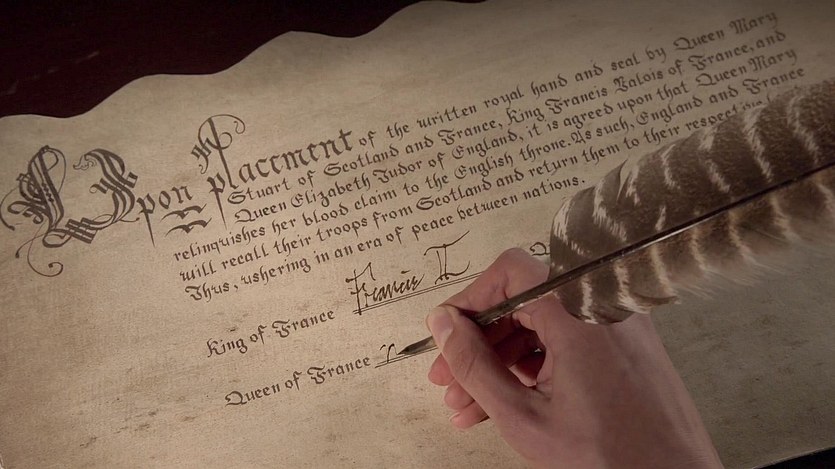 Upon placement of the written royal hand and seal by Queen Mary
Stuart of Scotland and France, King Francis Valois of France, and
Queen Elizabeth Tudor of England, it is agreed upon that Queen Mary
relinquishes her blood claim to the English throne. As such, England and France
will recall their troops from Scotland and return them to their
Thus, ushering in an era of peace between nations.
Francis II
King of France
Queen of France